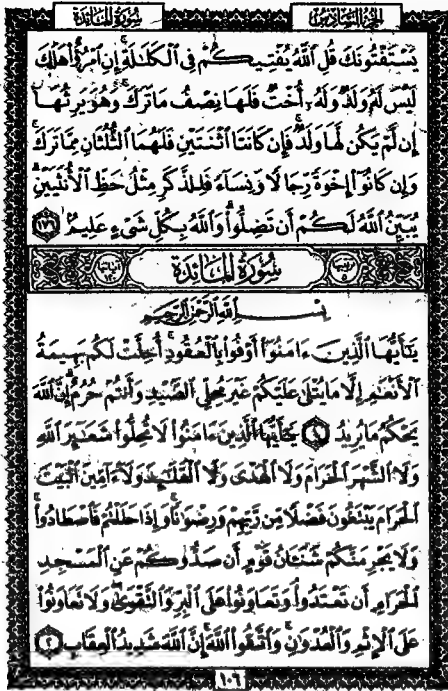 سُورَةُ المَائدَة الجُزءُ السَّادِسُ
يَسْتَفْتُونَكَ قُلِ ٱللَّهُ يُفْتِيكُمْ فِى ٱلْكَلَٰلَةِ إِنِ ٱمْرُؤٌا۟ هَلَكَ
لَيْسَ لَهُۥ وَلَدٌ وَلَهُۥٓ أُخْتٌ فَلَهَا نِصْفُ مَا تَرَكَ وَهُوَ يَرِثُهَآ
إِن لَّمْ يَكُن لَّهَا وَلَدٌ فَإِن كَانَتَا ٱثْنَتَيْنِ فَلَهُمَا ٱلثُّلُثَانِ مِمَّا تَرَكَ
وَإِن كَانُوٓا۟ إِخْوَةً رِّجَالًا وَنِسَآءً فَلِلذَّكَرِ مِثْلُ حَظِّ ٱلْأُنثَيَيْنِ
يُبَيِّنُ ٱللَّهُ لَكُمْ أَن تَضِلُّوا۟ وَٱللَّهُ بِكُلِّ شَىْءٍ عَلِيمٌۢ ١٧٦
سُورَةُ المَائدَة
بِسْمِ ٱللَّهِ ٱلرَّحْمَٰنِ ٱلرَّحِيمِ
يَٰٓأَيُّهَا ٱلَّذِينَ ءَامَنُوٓا۟ أَوْفُوا۟ بِٱلْعُقُودِ أُحِلَّتْ لَكُم بَهِيمَةُ
ٱلْأَنْعَٰمِ إِلَّا مَا يُتْلَىٰ عَلَيْكُمْ غَيْرَ مُحِلِّى ٱلصَّيْدِ وَأَنتُمْ حُرُمٌ إِنَّ ٱللَّهَ
يَحْكُمُ مَا يُرِيدُ ١ يَٰٓأَيُّهَا ٱلَّذِينَ ءَامَنُوا۟ لَا تُحِلُّوا۟ شَعَٰٓئِرَ ٱللَّهِ
وَلَا ٱلشَّهْرَ ٱلْحَرَامَ وَلَا ٱلْهَدْىَ وَلَا ٱلْقَلَٰٓئِدَ وَلَآ ءَآمِّينَ ٱلْبَيْتَ
ٱلْحَرَامَ يَبْتَغُونَ فَضْلًا مِّن رَّبِّهِمْ وَرِضْوَٰنًا وَإِذَا حَلَلْتُمْ فَٱصْطَادُوا۟
وَلَا يَجْرِمَنَّكُمْ شَنَـَٔانُ قَوْمٍ أَن صَدُّوكُمْ عَنِ ٱلْمَسْجِدِ
ٱلْحَرَامِ أَن تَعْتَدُوا۟ وَتَعَاوَنُوا۟ عَلَى ٱلْبِرِّ وَٱلتَّقْوَىٰ وَلَا تَعَاوَنُوا۟
عَلَى ٱلْإِثْمِ وَٱلْعُدْوَٰنِ وَٱتَّقُوا۟ ٱللَّهَ إِنَّ ٱللَّهَ شَدِيدُ ٱلْعِقَابِ ٢
١٠٦